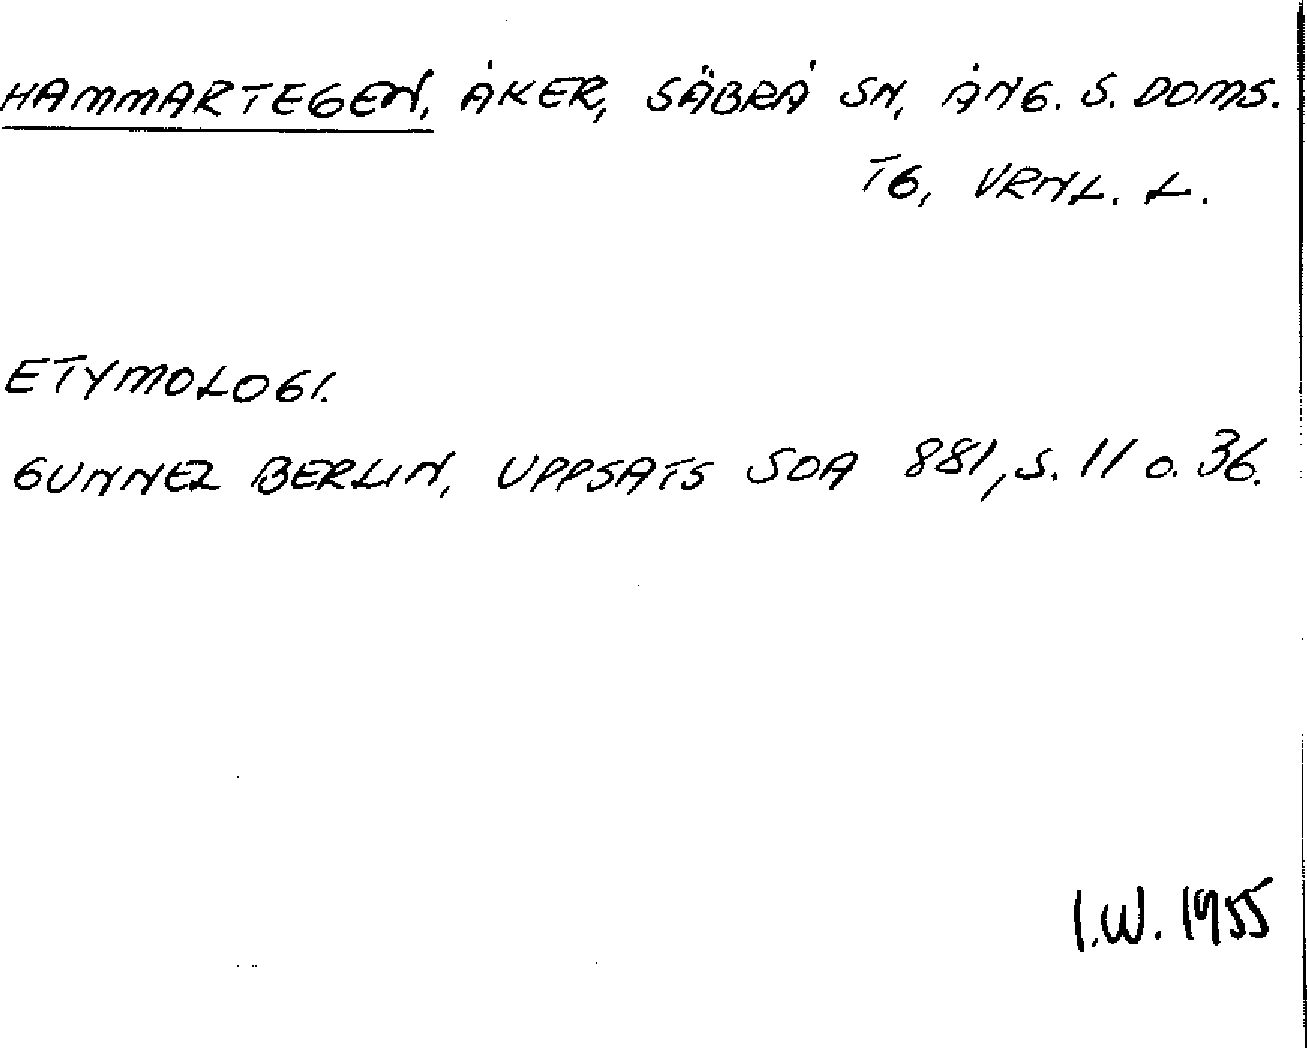 HAMMARTEGEN, ÅKER, SÄBRÅ SN, ÅNG. S. DOMS.
TG, VRNL. L.
ETYMOLOGI.
GUNNEL BERLIN, UPPSATS SOA 881, S. 11 O. 36.
I.W. 1955